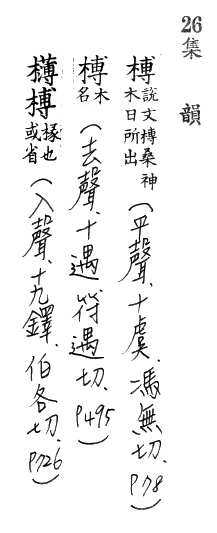 26集韻
榑說文榑桑神木日所出(平聲、十虞.馮無切.P.78)
榑木名(去聲、十遇符遇切.P495)
欂榑㭟也或省(入聲、十九鐸.伯各切.P726)